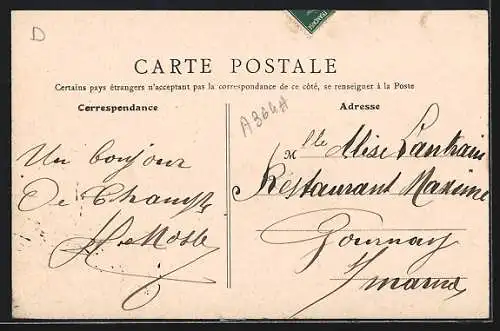 D
CARTE POSTALE
Certains pays étrangers n'acceptant pas la correspondance de ce côté, se renseigner à la Poste
Correspondance
Adresse
A364A
Un bonjour
De Champs
Mlle Alise
Restaurant Maxime
Gournay
S/ marne